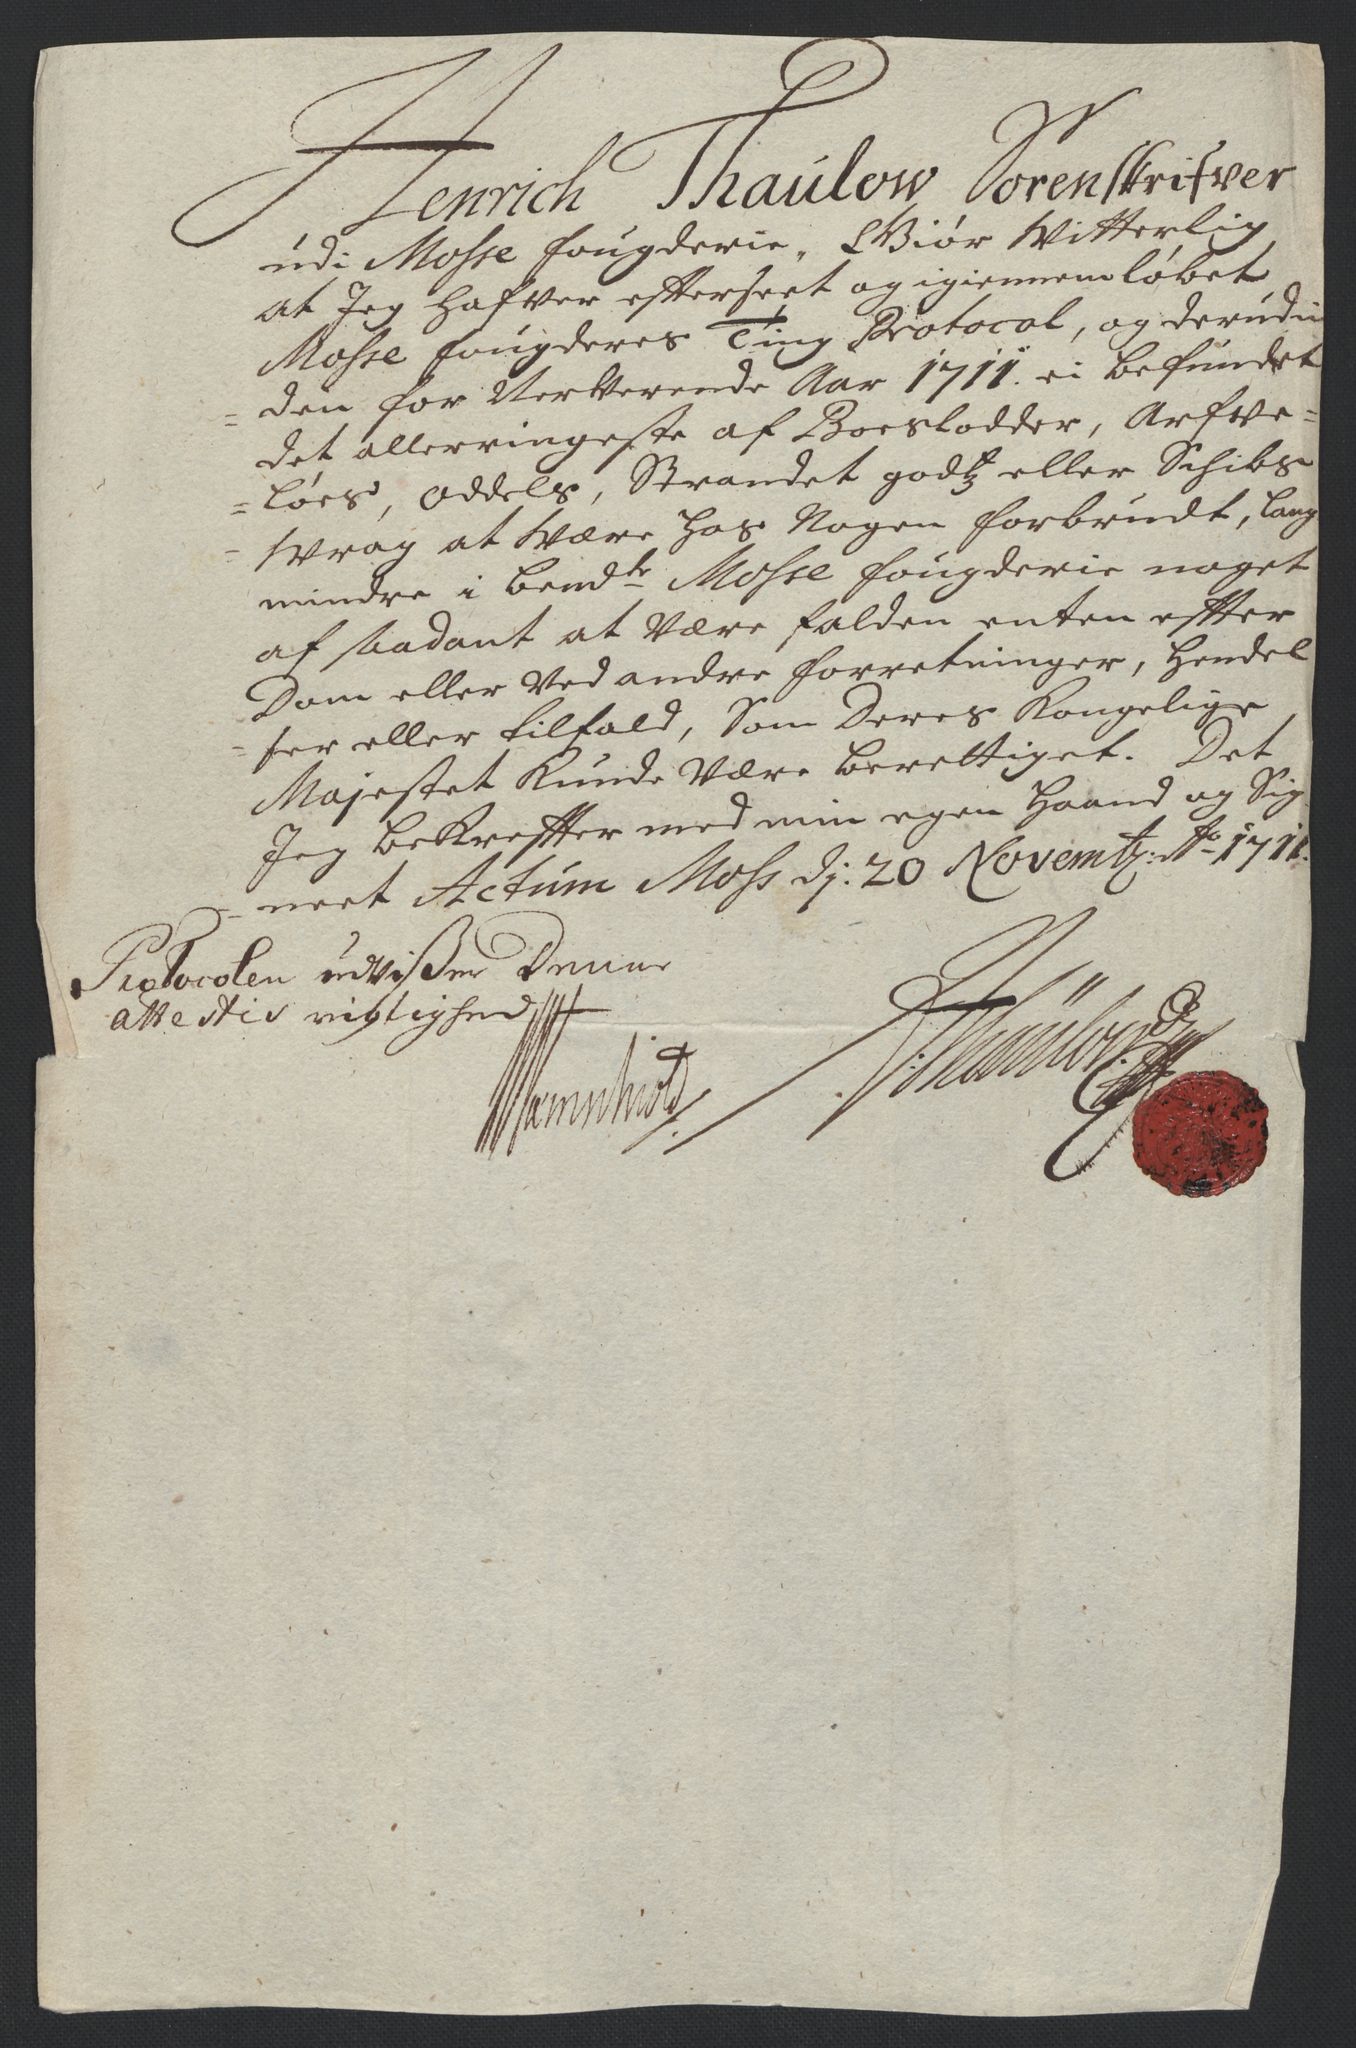 Henrich Thaulow Sorenskrifver
udi Mosse fougderie, Giör Witterlig
at Jeg hafver efterseet og igiennemløbet
Mosse fougderes Ting Protocol, og derudi
= den for Nerverende Aar 1711. ei befundet
det allerringeste af Boeslodder, Arfve=
= løes, Oddels, Strandet godtz eller Schibs
= wrag at være hos Nogen forbrudt, lang
mindre i bemdte Mosse fougderie noget
af saadant at være falden enten efter
Dom eller Ved andre forretninger, Hendel
= ser eller tilfald, Som Deres Kongelige
Majestet Kunde være berettiget. Det
Jeg bekreffter med min egen Haand og Sig
= neet Actum Moss dj: 20 Novembr: Ao 1711.
Protocolen udvißer Denne
attestis rigtighed
HThaulow